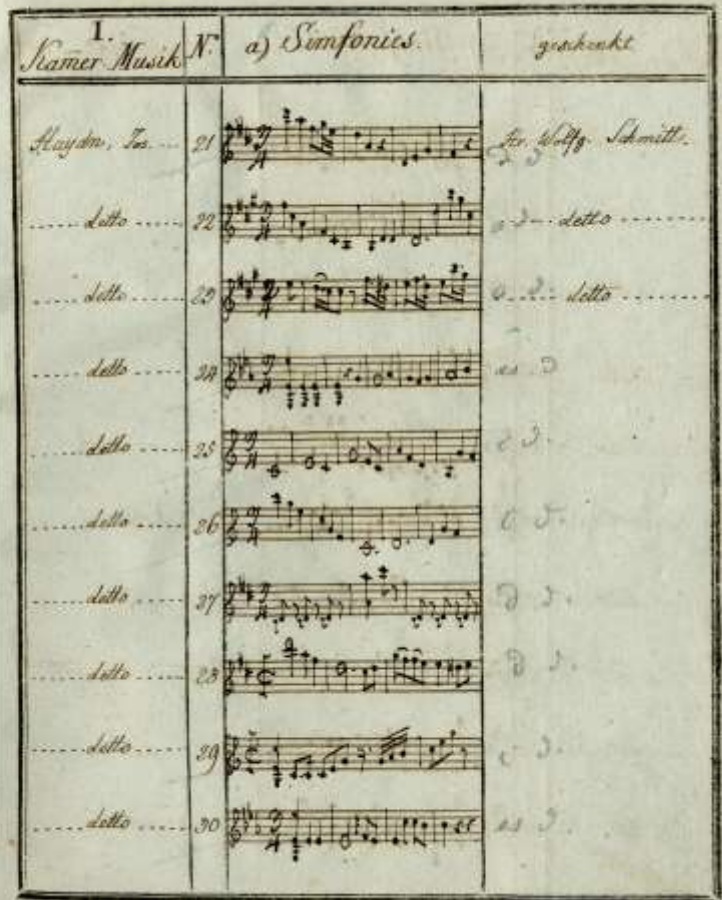 I.
Kamer Musik N.º a) Simfonies. geschenkt
Haydn, Jos. 21 Hr. Wolfg. Schmitt.
detto 22 detto
detto 23 detto
detto 24
detto 25
detto 26
detto 27
detto 28
detto 29
detto 30